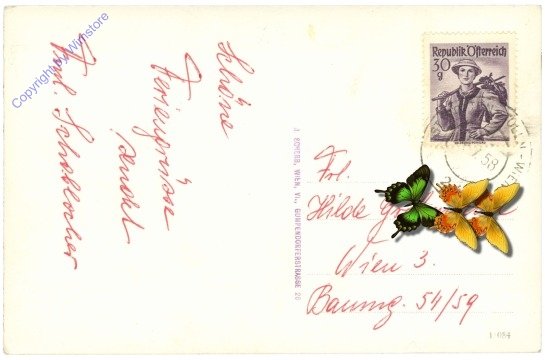 Schöne
Feriengrüsse
sendet
Fam.
Copyright by Winstore
Republik Österreich
30
g
WIEN
58
J. SCHERB, WIEN, VI., GUMPENDORFERSTRASSE 20
Frl.
Hilde
Wien 3.
Baumg. 54/59